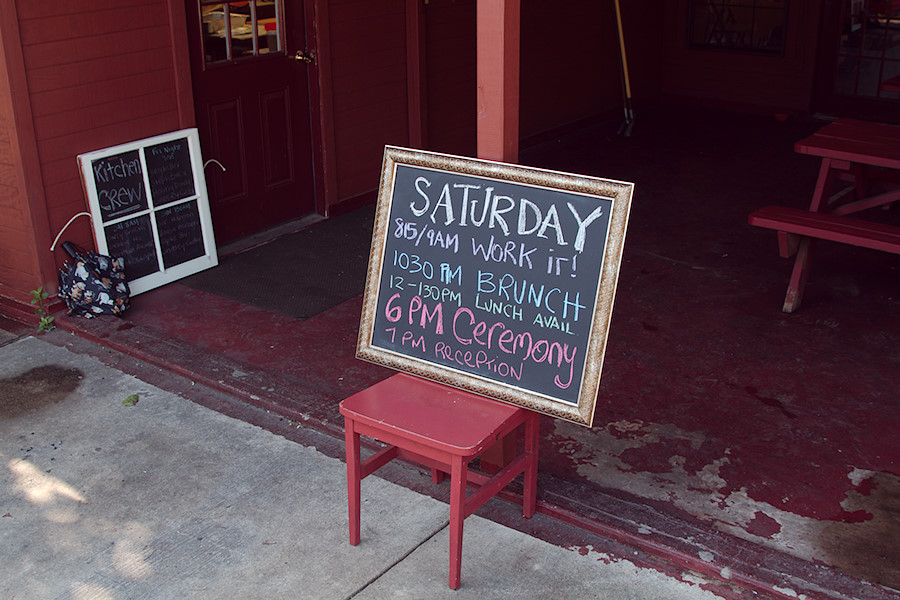 Kitchen
CREW
Fri Night
SATURDAY
815/9AM WORK it!
1030 AM BRUNCH
12-130PM LUNCH AVAIL
6 PM Ceremony
7 PM RECEPTION